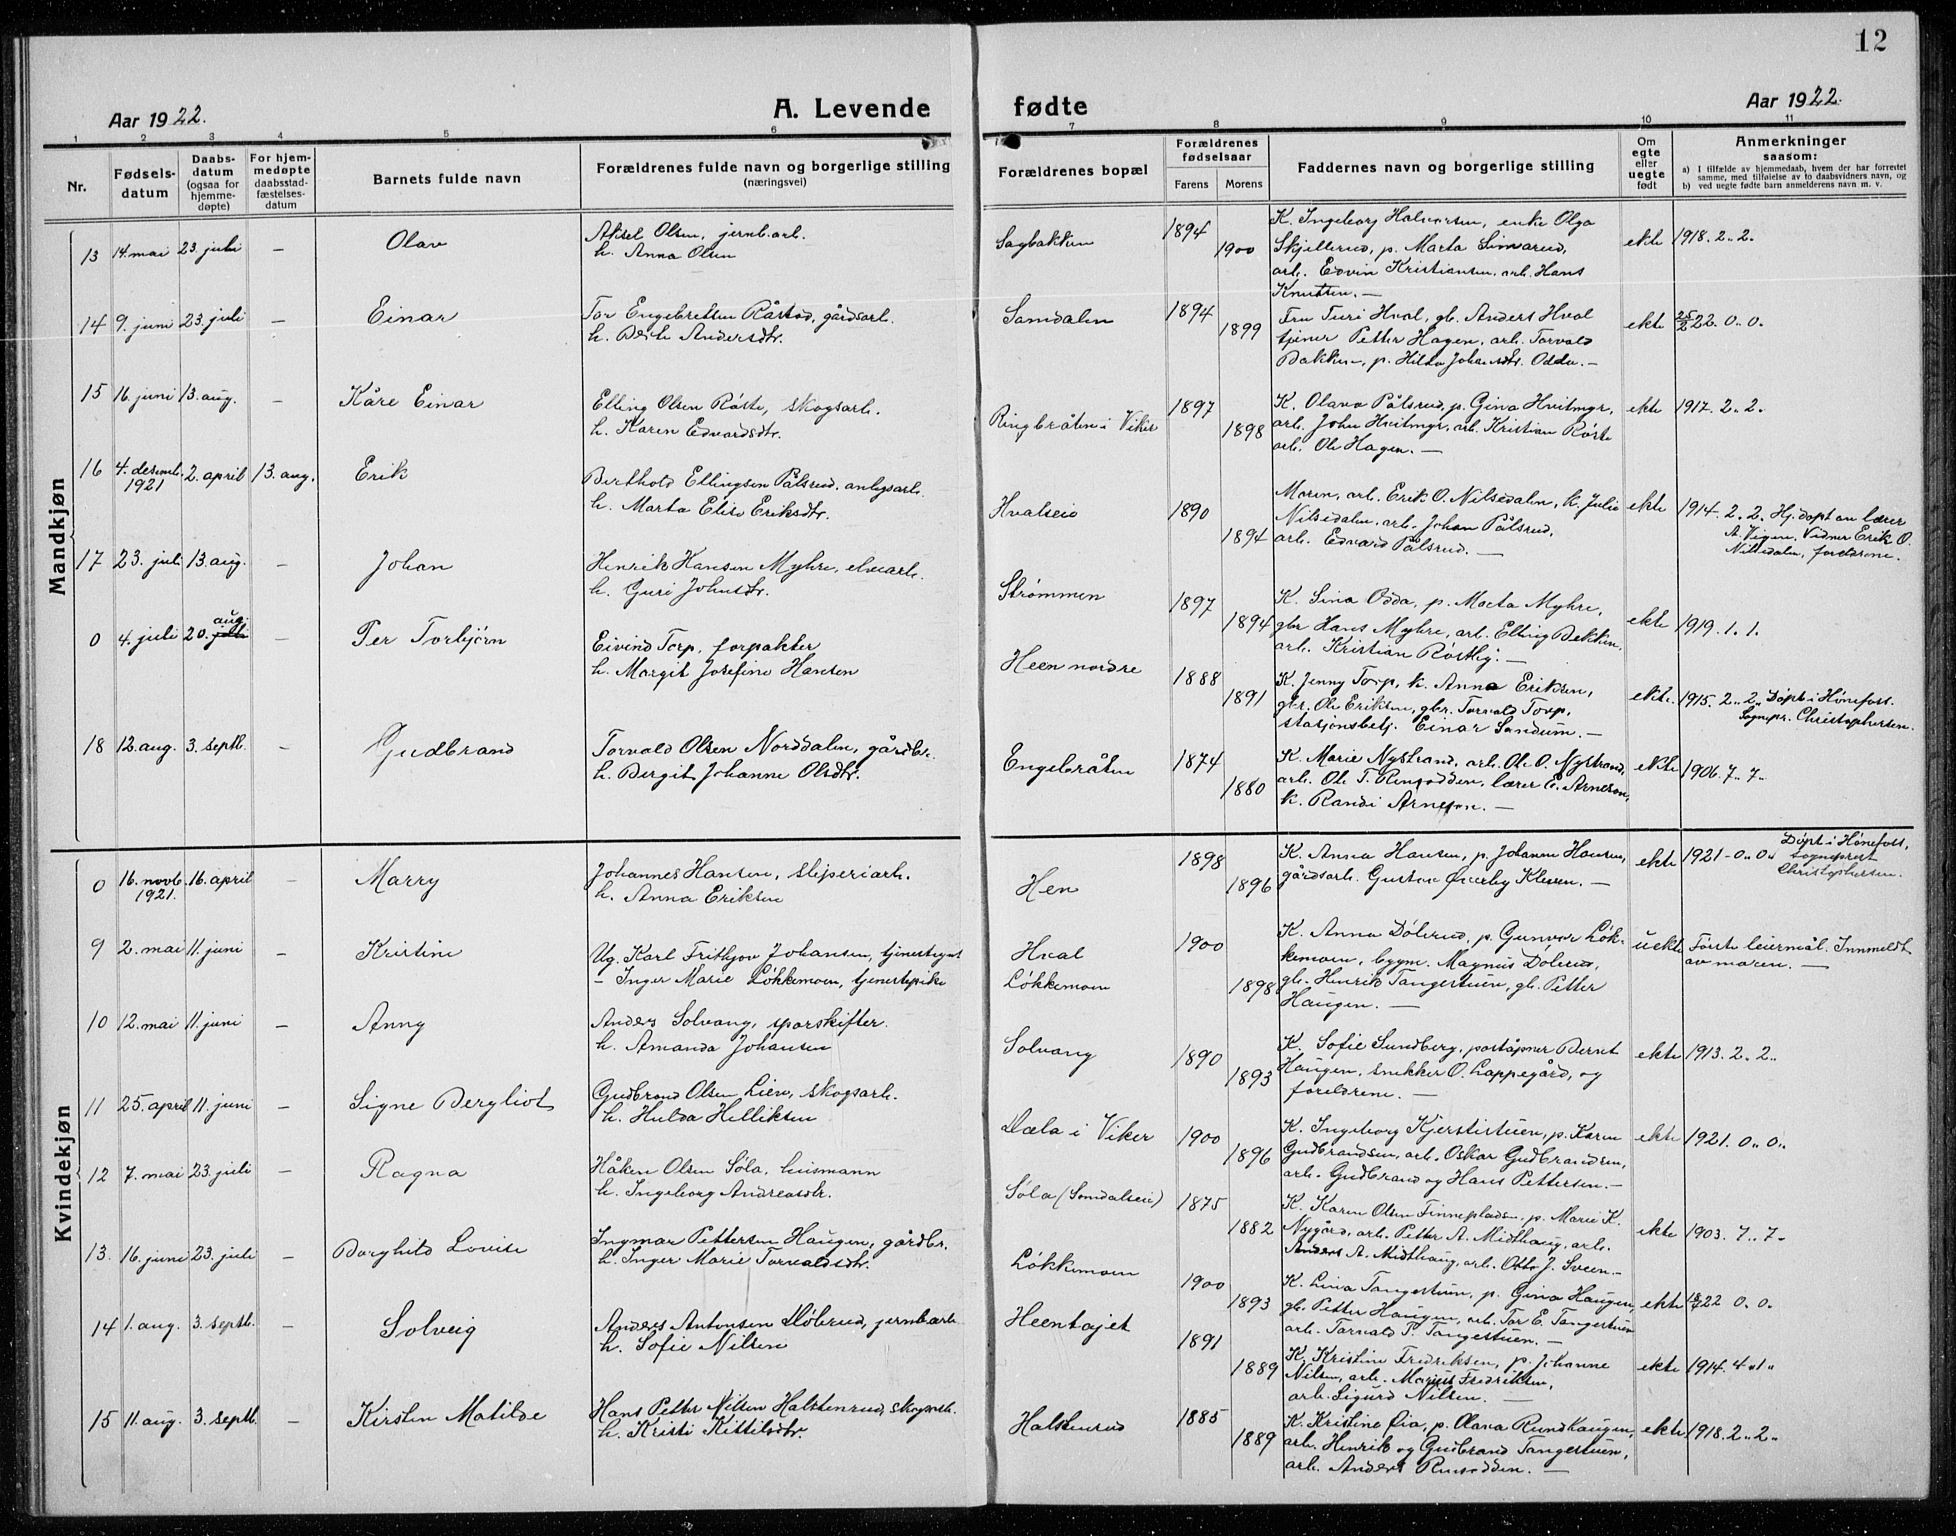 12
Aar 1922.
A. Levende
fødte
Aar 1922.
1 2 3 4 5 6 7 8 9 10 11
Nr.
Fødsels-
datum
Daabs-
datum
(ogsaa for
hjemme-
døpte)
For hjem-
medøpte
daabsstad-
fæstelses-
datum
Barnets fulde navn
Forældrenes fulde navn og borgerlige stilling
(næringsvei)
Forældrenes bopæl
Forældrenes
fødselsaar
Farens
Morens
Faddernes navn og borgerlige stilling
Om
egte
eller
uegte
født
Anmerkninger
saasom:
a) I tilfælde av hjemmedaab, hvem der har forrettet
samme, med tilføielse av to daabsvidners navn, og
b) ved uegte fødte barn anmelderens navn m. v.
Mandkjøn
13 14. mai 23. juli — Olav
Aksel Olsen, jernb.arb.
h. Anna Olsen
Sagbakken
1894
1900
K. Ingeborg Halvorsen, enke Olga
Skjellerud, p. Marta Simarud,
arb. Edvin Kristiansen, arb. Hans
Knutsen. —
ekte 1918. 2.. 2..
14 9. juni 23. juli — Einar
Tor Engebretsen Råstad, gårdsarb.
h. Berte Andersdtr.
Somdalen
1894
1899
Fru Turi Hval, gb. Anders Hval
tjener Petter Hagen, arb. Torvald
Bakken, p. Hilda Johansdtr. Odda. —
ekte 25/2 22. 0.. 0..
15 16. juni 13. aug. — Kåre Einar
Elling Olsen Røste, skogsarb.
h. Karen Edvardsdtr.
Ringbråten i Viker
1897
1898
K. Olava Pålsrud, p. Gina Hvitmyr,
arb. John Hvitmyr, arb. Kristian Røste
arb. Ole Hagen. —
ekte 1917. 2.. 2..
16 4. desemb. 1921 2. april 13. aug. Erik
Berthold Ellingsen Pålsrud, anlegsarb.
h. Marta Elise Eriksdtr.
Hvalseie
1890
1894
Moren, arb. Erik O. Nilsedalen, k. Julie
Nilsedalen, arb. Johan Pålsrud,
arb. Edvard Pålsrud. —
ekte 1914. 2.. 2.. Hj.døpt av lærer
A. Vigen. Vidner Erik O.
Nilsedalen, foreldrene.
17 23. juli 13. aug. — Johan
Henrik Hansen Myhre, elvearb.
h. Guri Johnsdtr.
Strømmen
1897
1894
K. Sina Odda, p. Marta Myhre,
gbr. Hans Myhre, arb. Elling Bekken,
arb. Kristian Røstby. —
ekte 1919. 1.. 1..
0 4. juli 20. juli aug. — Per Torbjørn
Eivind Torp, forpakter
h. Margit Josefine Hansen
Heen nordre
1888
1891
K. Jenny Torp, k. Anna Eriksen,
gbr. Ole Eriksen, gbr. Torvald Torp,
stasjonsbetj. Einar Sandum. —
ekte. 1915. 2.. 2.. Døpt i Hønefoss.
Sognepr. Christophersen.
18 12. aug. 3. septb. — Gudbrand
Torvald Olsen Norddalen, gårdbr.
h. Bergit Johanne Olsdtr.
Engebråten
1874
1880
K. Marie Nystrand, arb. Ole O. Nystrand,
arb. Ole T. Rensodden, lærer E. Arneson,
k. Randi Arneson. —
ekte 1906. 7.. 7..
Kvindekjøn
0 16. novb. 1921. 16. april — Marry
Johannes Hansen, sliperiarb.
h. Anna Eriksen
Hen
1898
1896
K. Anna Hansen, p. Johanne Hansen,
gårdsarb. Gustav Øverby Kleven. —
ekte 1921 – 0.. 0.. Døpt i Hønefoss,
sogneprest
Christophersen.
9 2. mai 11. juni — Kristine
Ug. Karl Frithjov Johansen, tjenestegut
— Inger Marie Løkkemoen, tjenestepike
Hval
Løkkemoen
1900
1898
K. Anna Dølerud, p. Gunvor Løk-
kemoen, bygm. Magnus Dølerud,
gb. Henrik Tangestuen, gb. Petter
Haugen. —
uekte Første leiermål. Innmeldt
av moren. —
10 12. mai 11. juni — Anny
Anders Solvang, sporskifter.
h. Amanda Johansen
Solvang
1890
1893
K. Sofie Sundberg, poståpner Bernt
Haugen, snekker O. Lappegård, og
foreldrene. —
ekte 1913. 2.. 2..
11 25. april 11. juni — Signe Bergliot
Gudbrand Olsen Lien, skogsarb.
h. Hulda Helliksen
Dæla i Viker
1900
1896
K. Ingeborg Kjerstistuen, p. Karen
Gudbrandsen, arb. Oskar Gudbrandsen,
arb. Gudbrand og Hans Pettersen. —
ekte 1921. 0.. 0..
12 7. mai 23. juli — Ragna
Håken Olsen Søla, husmann
h. Ingeborg Andreasdtr.
Søla (Somdalseie)
1875
1882
K. Karen Olsen Finnepladsen, p. Marie K.
Nygård, arb. Petter A. Midthaug, arb.
Anders A. Midthaug, arb. Otto J. Sveen. —
ekte 1903. 7.. 7..
13. 16. juni 23. juli — Borghild Lovise
Ingmar Pettersen Haugen, gårdbr.
h. Inger Marie Torvaldsdtr.
Løkkemoen
1900
1893
K. Lina Tangestuen, p. Gina Haugen,
gb. Petter Haugen, arb. Tor E. Tangestuen
arb. Torvald P. Tangestuen. —
ekte 22 0.. 0..
14 1. aug. 3. septb. — Solveig
Anders Antonsen Dølerud, jernb.arb.
h. Sofie Nilsen
Heentajet
1891
1889
K. Kristine Fredriksen, p. Johanne
Nilsen, arb. Magnus Fredriksen,
arb. Sigurd Nilsen. —
ekte 1914. 4.. 1..
15 11. aug. 3. septb. — Kirsten Matilde
Hans Petter Nilsen Halstenrud, skogsarb.
h. Kristi Kittilsdtr.
Halstenrud
1885
1889
K. Kristine Øia, p. Olava Rundhaugen,
arb. Henrik og Gudbrand Tangestuen,
arb. Anders Rensodden. —
ekte 1918. 2.. 2..